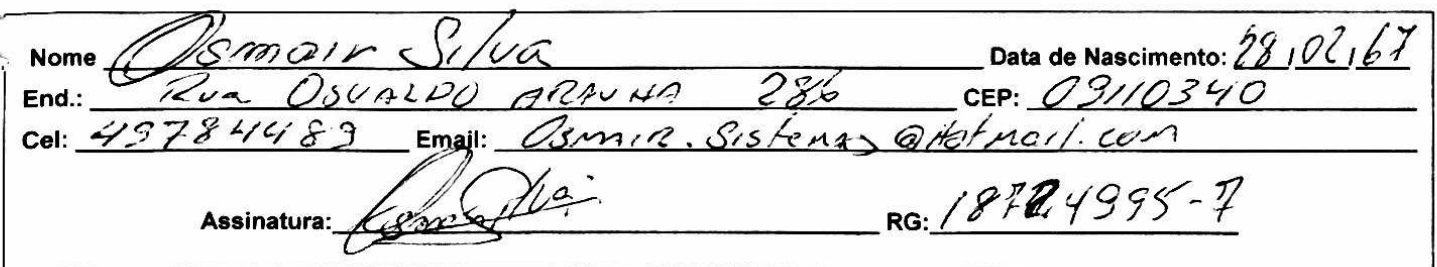 Nome Osmair Silva Data de Nascimento: 28/02/67
End.: Rua OSVALDO ARAUNA 286 CEP: 09110340
Cel: 49784489 Email: OSMAIR.Sistemas@Hotmail.com
Assinatura: RG: 18724995-7